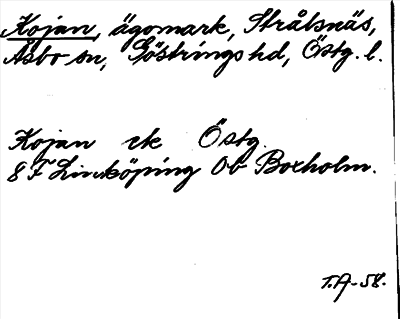 Kojan, ägomark, Strålsnäs,
Åsbo sn, Göstrings hd, Östg. l.
Kojan ek Östg.
8 F Linköping Ob Boxholm.
T.A-58.